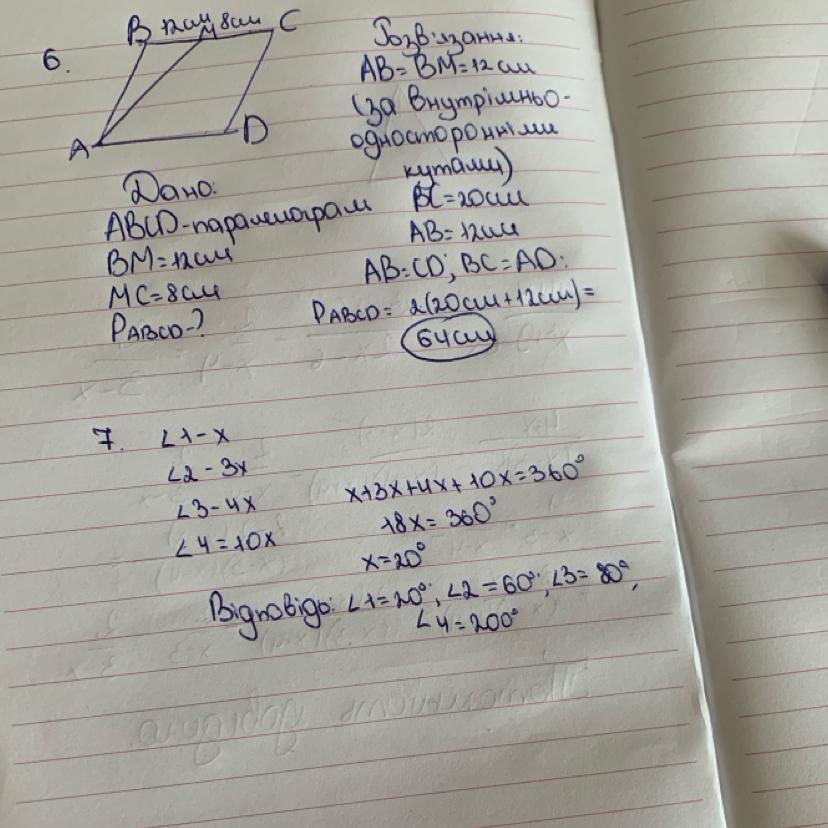 6.
B 12см M 8см C
A D
Дано:
ABCD-паралелограм
BM=12см
MC=8см
PABCD-?
Розв'язання:
AB=BM=12см
(за внутрішньо-
односторонніми
кутами)
BC=20см
AB=12см
AB=CD; BC=AD:
PABCD= 2(20см+12см)=
64см
7. ∠1-x
∠2-3x
∠3-4x
∠4=10x
x+3x+4x+10x=360°
18x=360°
x=20°
Відповідь: ∠1=20°; ∠2=60°; ∠3=80°,
∠4=200°